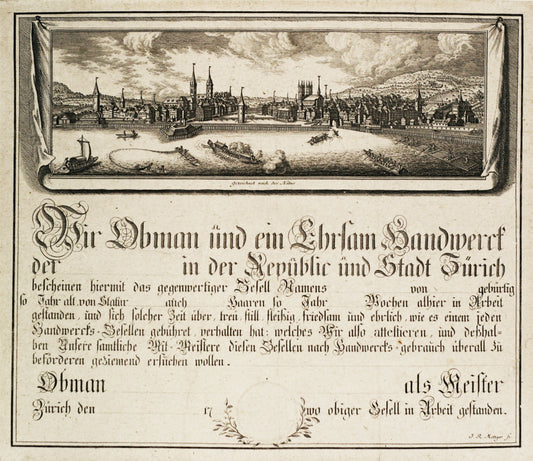 Gezeichnet nach der Natur
Wir Obman und ein Ehrsam Handwerck
der in der Republic und Stadt Zürich
bescheinen hiermit das gegenwertiger Gesell Namens von gebürtig
so Jahr alt, von Statur auch Haaren so Jahr Wochen alhier in Arbeit
gestanden, und sich solcher Zeit über, treu, still, fleißig, friedsam und ehrlich, wie es einem jeden
Handwercks-Gesellen gebühret, verhalten hat; welches Wir also attestieren, und deßhal-
ben Unsere samtliche Mit-Meistere diesen Gesellen nach Handwercks-gebrauch überall zu
befördern geziemend ersuchen wollen.
Obman als Meister
Zürich den 17 wo obiger Gesell in Arbeit gestanden.
J. R. Metzger f.